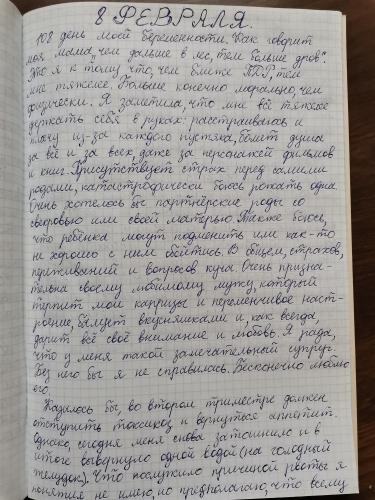 8 ФЕВРАЛЯ.
108 день моей беременности. Как говорит
моя мама "чем дальше в лес, тем больше дров".
Это я к тому что, чем ближе ПДР, тем
мне тяжелее. Больше конечно морально, чем
физически. Я заметила, что мне всё тяжелее
держать себя в руках: расстраиваюсь и
плачу из-за каждого пустяка, болит душа
за всё и за всех даже за персонажей фильмов
и книг. Присутствует страх перед самими
родами, катастрофически боюсь рожать одна.
Очень хотелось бы партнёрские роды со
свекровью или своей матерью. Также боюсь,
что ребёнка могут подменить или как-то
не хорошо с ним обойтись. В общем, страхов,
переживаний и вопросов куча. Очень призна-
тельна своему любимому мужу, который
терпит мои капризы и переменчивое наст-
роение, балует вкусняшками и, как всегда,
дарит всё своё внимание и любовь. Я рада,
что у меня такой замечательный супруг.
Без него бы я не справилась. Бесконечно люблю
его.
Казалось бы, во втором триместре должен
отступить токсикоз и вернуться аппетит.
Однако, сегодня меня снова затошнило и в
итоге вывернуло одной водой (на голодный
желудок). Что послужило причиной рвоты я
понятия не имею, но предполагаю, что всему